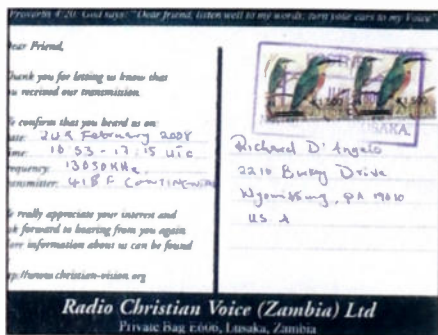 Proverbs 4:20: God says: "Dear friend, listen well to my words; turn your ears to my Voice"
ear Friend,
hank you for letting us know that
u received our transmission.
e confirm that you heard us on:
ate: February 2008
me: 16 53 - 17 15 UTC
equency: KHz
ansmitter:
e really appreciate your interest and
k forward to hearing from you again.
re information about us can be found
p://www.christian-vision.org
K1,500
LUSAKA
Richard D'Angelo
2210 Drive
PA 19610
US A
Radio Christian Voice (Zambia) Ltd
Private Bag E606, Lusaka, Zambia